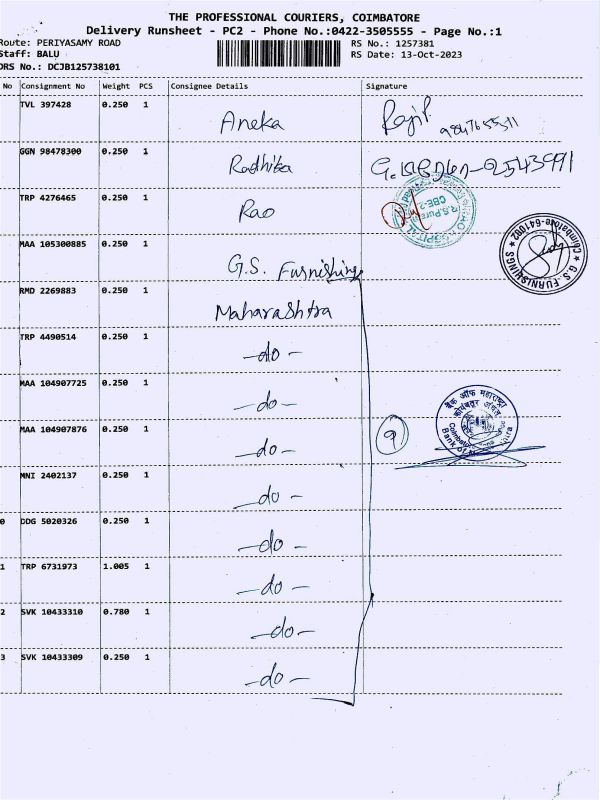 THE PROFESSIONAL COURIERS, COIMBATORE
Delivery Runsheet - PC2 - Phone No.:0422-3505555 - Page No.:1
Route: PERIYASAMY ROAD RS No.: 1257381
Staff: BALU RS Date: 13-Oct-2023
DRS No.: DCJB125738101
No Consignment No Weight PCS Consignee Details Signature
TVL 397428 0.250 1 Aneka Rajit
GGN 98478300 0.250 1 Radhika
TRP 4276465 0.250 1 Rao
MAA 105300885 0.250 1 G.S. Furnishing
G.S. FURNISHINGS Coimbatore-641002
RMD 2269883 0.250 1 Maharashtra
TRP 4490514 0.250 1 -do-
MAA 104907725 0.250 1 -do-
MAA 104907876 0.250 1 -do- 9
बैंक ऑफ महाराष्ट्र
Bank of
MNI 2402137 0.250 1 -do-
0 DDG 5020326 0.250 1 -do-
1 TRP 6731973 1.005 1 -do-
2 SVK 10433310 0.780 1 -do-
3 SVK 10433309 0.250 1 -do-